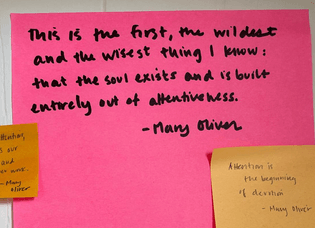 This is the first, the wildest
and the wisest thing I know:
that the soul exists and is built
entirely out of attentiveness.
- Mary Oliver
our
and
work.
- Mary
Oliver
Attention is
the beginning
of devotion
- Mary Oliver